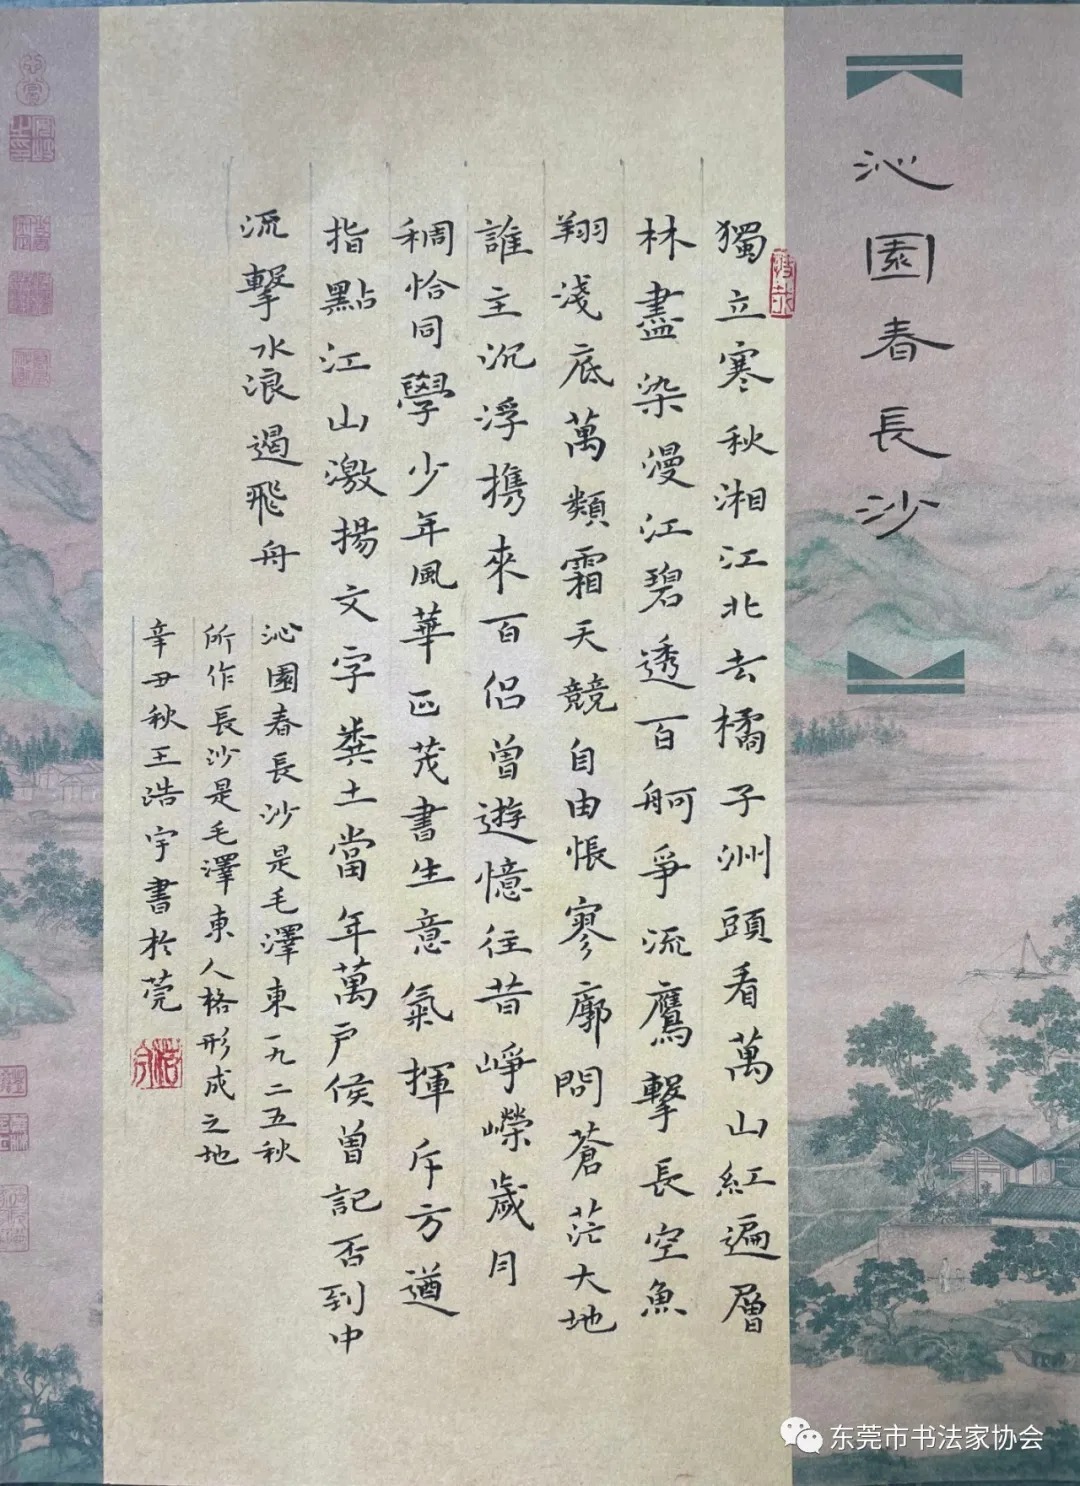 沁園春長沙
獨立寒秋湘江北去橘子洲頭看萬山紅遍層
林盡染漫江碧透百舸爭流鷹擊長空魚
翔淺底萬類霜天競自由悵寥廓問蒼茫大地
誰主沉浮攜來百侶曾遊憶往昔崢嶸歲月
稠恰同學少年風華正茂書生意氣揮斥方遒
指點江山激揚文字糞土當年萬戶侯曾記否到中
流擊水浪遏飛舟
沁園春長沙是毛澤東一九二五秋
所作長沙是毛澤東人格形成之地
辛丑秋王浩宇書於莞
东莞市书法家协会